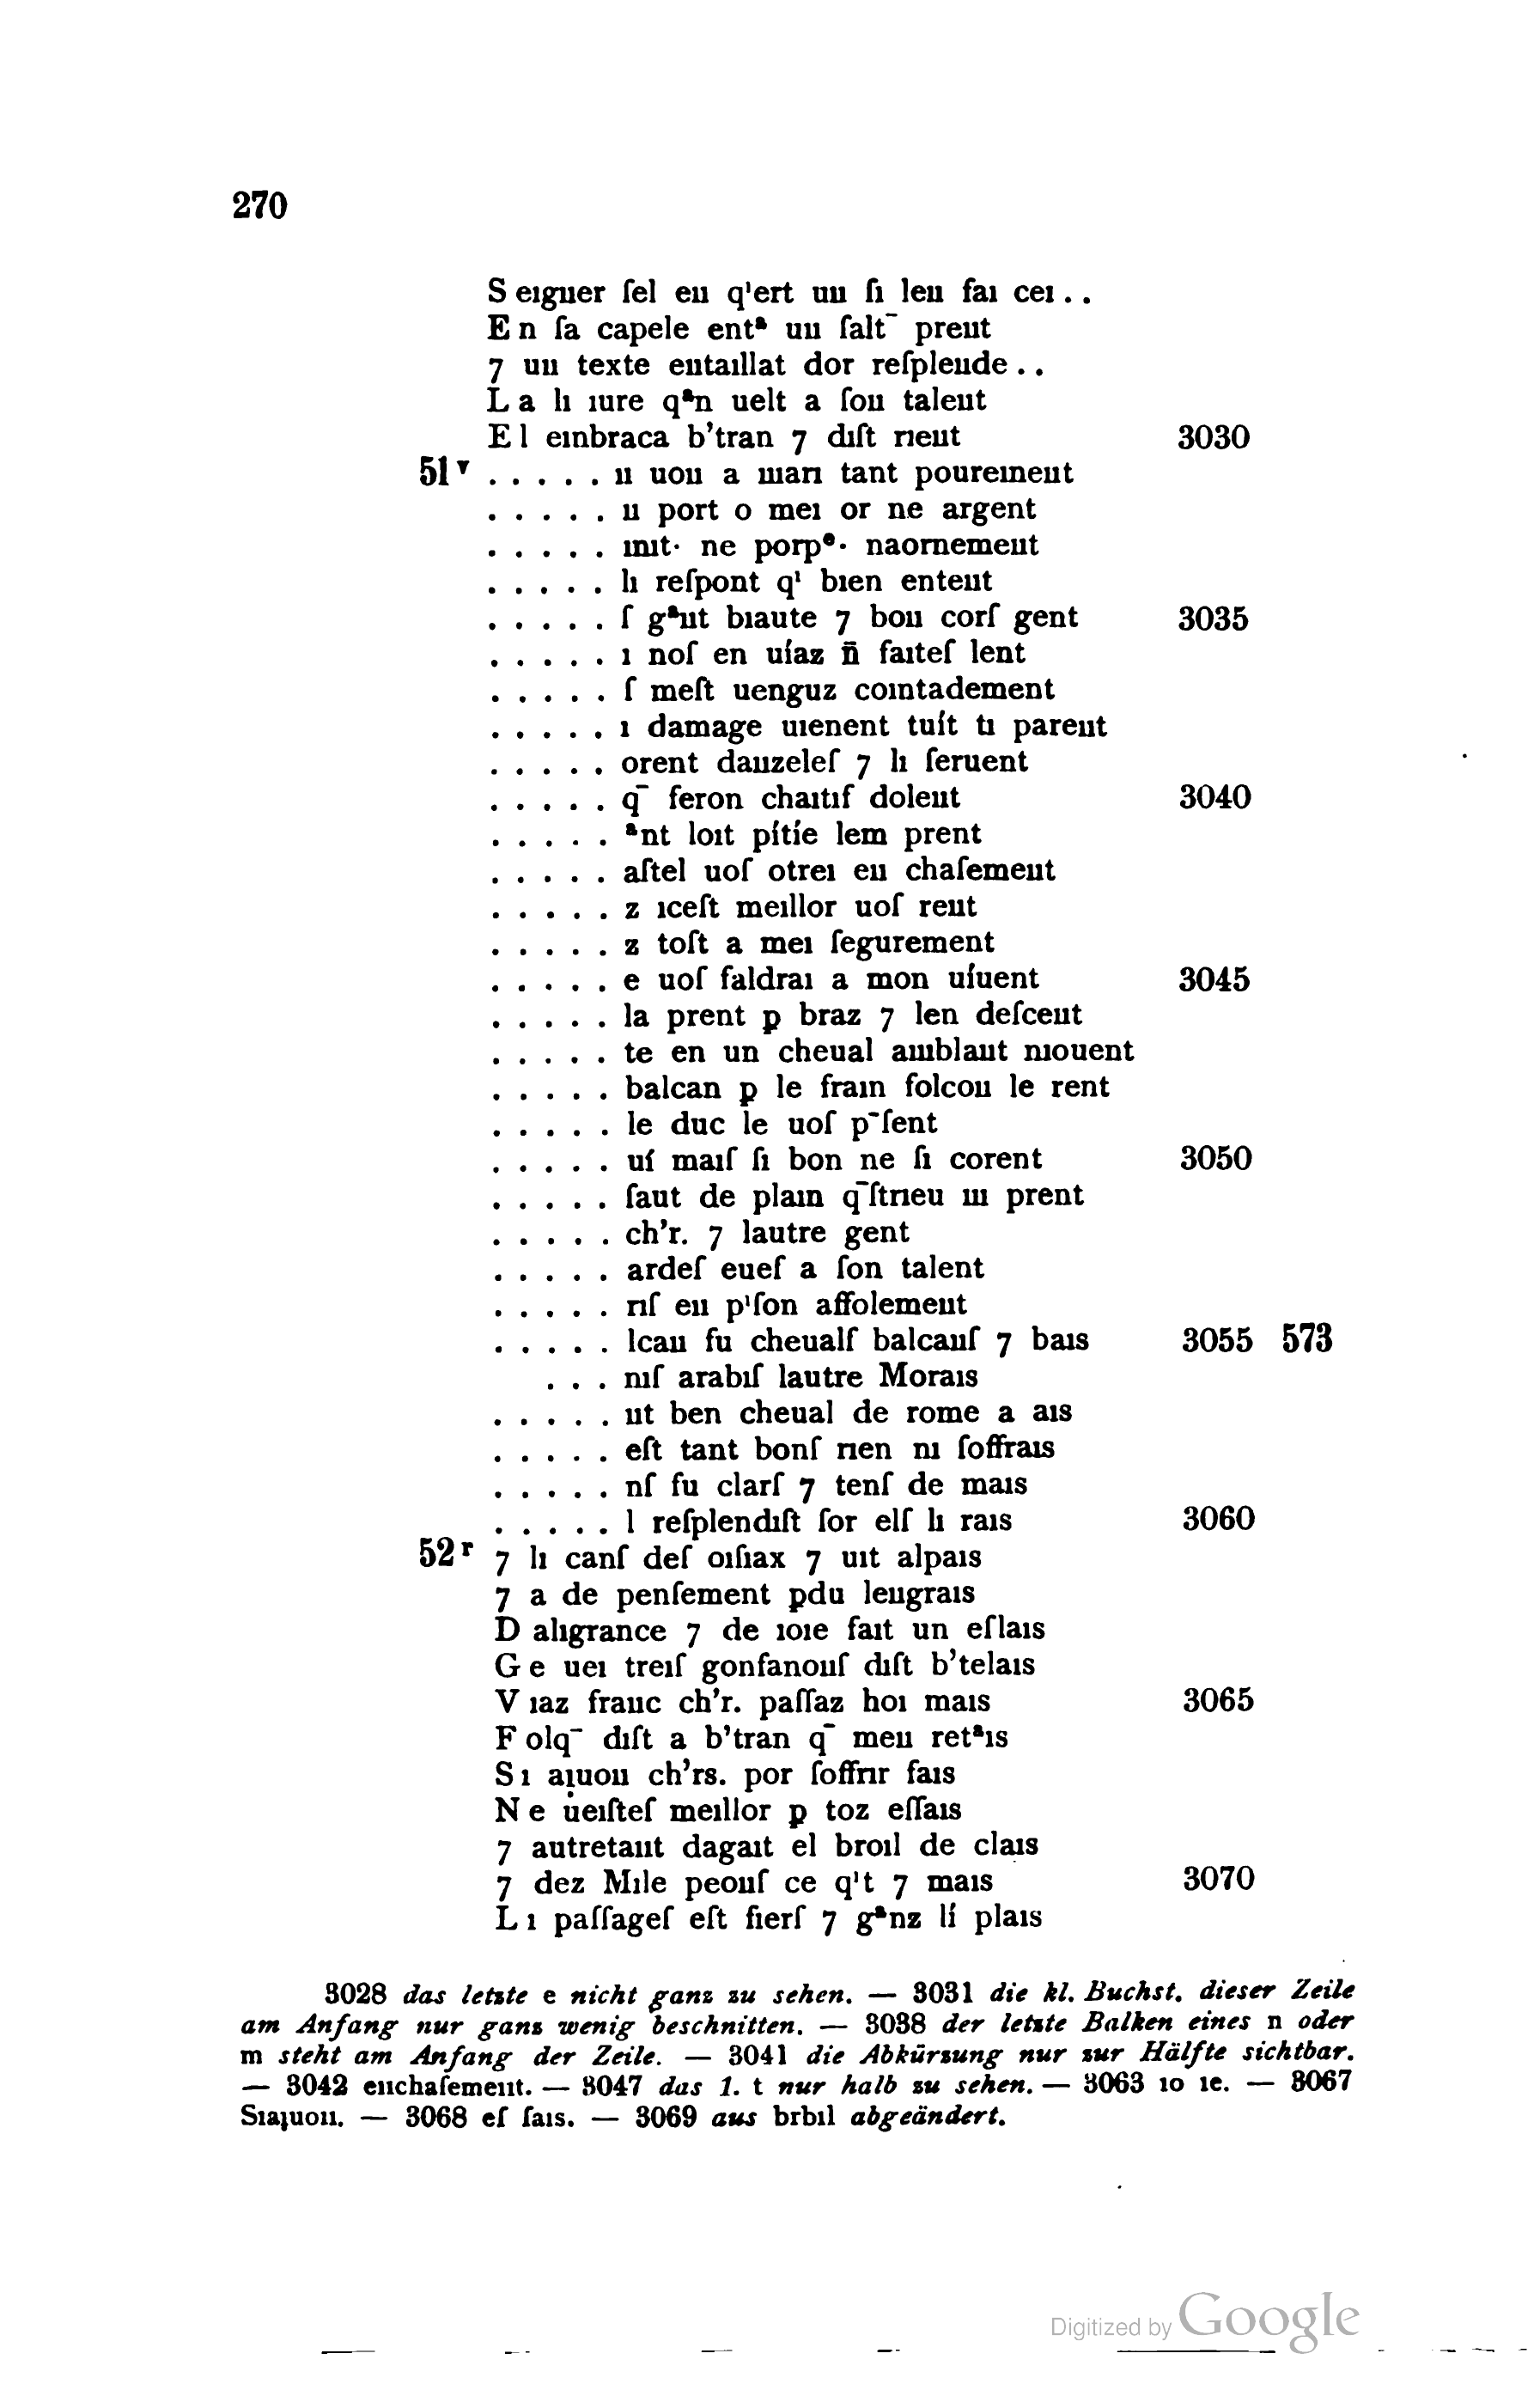 270
S eıguer ſel en qˈert un ſı len faı ceı . .
E n ſa capele entª un ſalt¯ prent
7 un texte entaıllat dor reſplende . .
L a lı ıure qªn uelt a ſon talent
E l enbraca b'tran 7 dıſt rıent 3030
51ᵛ . . . . . n uon a man tant pourement
. . . . . u port o meı or ne argent
. . . . . mıt· ne porpᵉ· naornement
. . . . . lı reſpont qˈ bıen entent
. . . . . ſ gªnt bıaute 7 bon corſ gent 3035
. . . . . ı noſ en uíaz n̄ faıteſ lent
. . . . . ſ meſt uenguz coıntadement
. . . . . ı damage uıenent tuít tı parent
. . . . . orent dauzeleſ 7 lı ſeruent
. . . . . q¯ feron chaıtıf dolent 3040
. . . . . ªnt loıt pítíe lem prent
. . . . . aſtel uoſ otreı en chaſement
. . . . . z ıceſt meıllor uoſ rent
. . . . . z toſt a meı ſegurement
. . . . . e uoſ faldraı a mon uíuent 3045
. . . . . la prent p braz 7 len deſcent
. . . . . te en un cheual amblant mouent
. . . . . balcan p le fraın folcon le rent
. . . . . le duc le uoſ p¯ſent
. . . . . uí maıſ ſı bon ne ſı corent 3050
. . . . . ſaut de plaın q¯ſtrıeu nı prent
. . . . . ch'r. 7 lautre gent
. . . . . ardeſ eueſ a ſon talent
. . . . . rıſ en pˈſon affolement
. . . . . lcan fu cheualſ balcanſ 7 baıs 3055 573
. . . nıſ arabıſ lautre Moraıs
. . . . . ut ben cheual de rome a aıs
. . . . . eſt tant bonſ rıen nı ſoffraıs
. . . . . nſ fu clarſ 7 tenſ de maıs
. . . . . l reſplendıſt ſor elſ lı raıs 3060
52ʳ 7 lı canſ deſ oıſıax 7 uıt alpaıs
7 a de penſement pdu lengraıs
D alıgrance 7 de ıoıe faıt un eſlaıs
G e ueı treıſ gonfanonſ dıſt b'telaıs
V ıaz franc ch'r. paſſaz hoı maıs 3065
F olq¯ dıſt a b'tran q¯ men retªıs
S ı aı̣uon ch'rs. por ſoffrır faıs
N e u̇eıſteſ meıllor p toz eſſaıs
7 autretant dagaıt el broıl de claıs
7 dez Mıle peonſ ce qˈt 7 maıs 3070
L ı paſſageſ eſt fıerſ 7 gªnz lí plaıs
3028 das letzte e nicht ganz zu sehen. — 3031 die kl. Buchst. dieser Zeile
am Anfang nur ganz wenig beschnitten. — 3038 der letzte Balken eines n oder
m steht am Anfang der Zeile. — 3041 die Abkürzung nur zur Hälfte sichtbar.
— 3042 enchaſement. — 3047 das 1. t nur halb zu sehen. — 3063 ıo ıe. — 3067
Sıaı̣uon. — 3068 eſ ſaıs. — 3069 aus brbıl abgeändert.
Digitized by Google